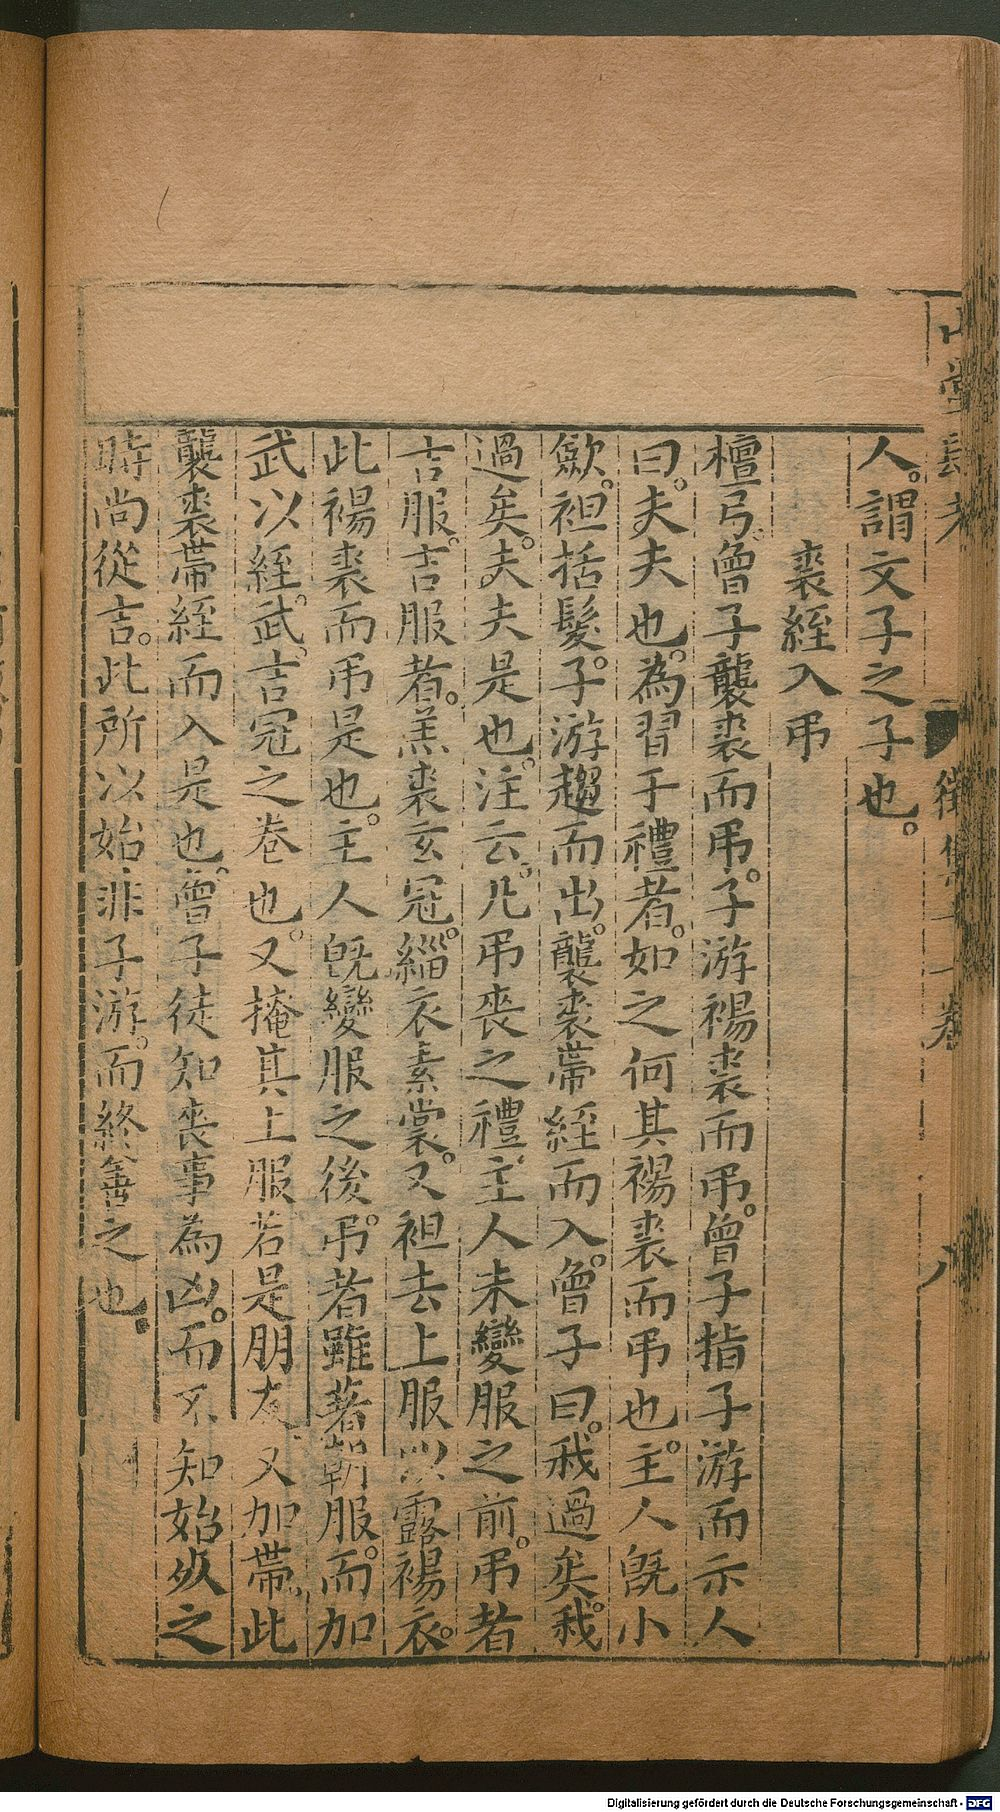 人。謂文子之子也。
裘絰入弔
檀弓。曾子襲裘而弔。子游裼裘而弔。曾子指子游而示人
曰。夫夫也。為習于禮者。如之何其裼裘而弔也。主人旣小
歛。袒括髮。子游趨而出。襲裘帶絰而入。曾子曰。我過矣。我
過矣。夫夫是也。注云。凡弔喪之禮。主人未變服之前。弔者
吉服。吉服者。羔裘玄冠。緇衣素裳。又袒去上服以露裼衣。
此裼裘而弔是也。主人旣變服之後。弔者雖著朝服。而加
武以絰。武。吉冠之卷也。又掩其上服若是朋友又加帶。此
襲裘帶絰而入是也。曾子徒知喪事為凶。而不知始死之
時尚從吉。此所以始非子游。而終善之也。
山堂肆考
徵集
卷
八
Digitalisierung gefördert durch die Deutsche Forschungsgemeinschaft - DFG